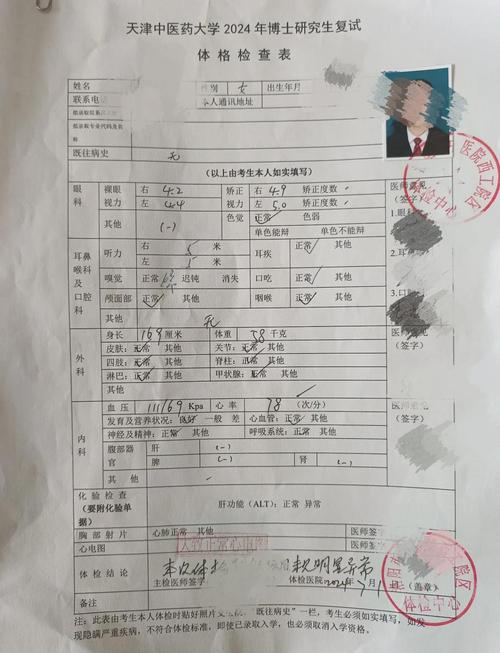 天津中医药大学 2024 年博士研究生复试
体 格 检 查 表
姓名 性别 女 出生年月
联系电话 本人通讯地址
拟录取院系所
拟录取专业代码及名称
既往病史 无
（以上由考生本人如实填写）
眼科 裸眼视力 右 4.2 矫正视力 右 4.9 矫正度数 医师意见
左 4.4 左 5.0 矫正度数 （签字）
其他 (-) 色觉 正常 色弱 1.眼科
单色能辩 单色不能辩
耳鼻喉科及口腔科 听力 右 5 米 耳疾 正常 其他
左 5 米 2.耳
嗅觉 正常 迟钝 消失 口吃 正常 其他
颅面部 正常 其他 咽喉 正常 其他 3.口腔
其他 无
外科 身长 169 厘米 体重 58 千克 医师意见
皮肤：正常 其他 关节：正常 其他 （签字）
四肢：正常 其他 脊柱：正常 其他
淋巴：正常 其他 甲状腺：正常 其他
其他
内科 血压 111/69 Kpa 心率 78 (次/分) 医师意见
发育及营养状况：良好 一般 差 心血管：正常 其他 （签字）
神经及精神：正常 其他 呼吸系统：正常 其他
腹部器官 肝 (-)
脾 (-) 肾 (-)
其他
化验检查（要附化验单据） 肝功能（ALT）：正常 异常
胸部射片 心肺正常 其他 医师签字
心电图 正常心电图 医师签
体检结论 本次体检 未见明显异常
主检医师签字 体检医院 2024年 月 （盖章）
备注
注：此表由考生本人体检时贴好照片 "既往病史"一栏，考生必须如实填写，如发
现隐瞒严重疾病，不符合体检标准，即使已录取入学，也必须取消入学资格。
医院西工院区
体检中心
院区
体检中心